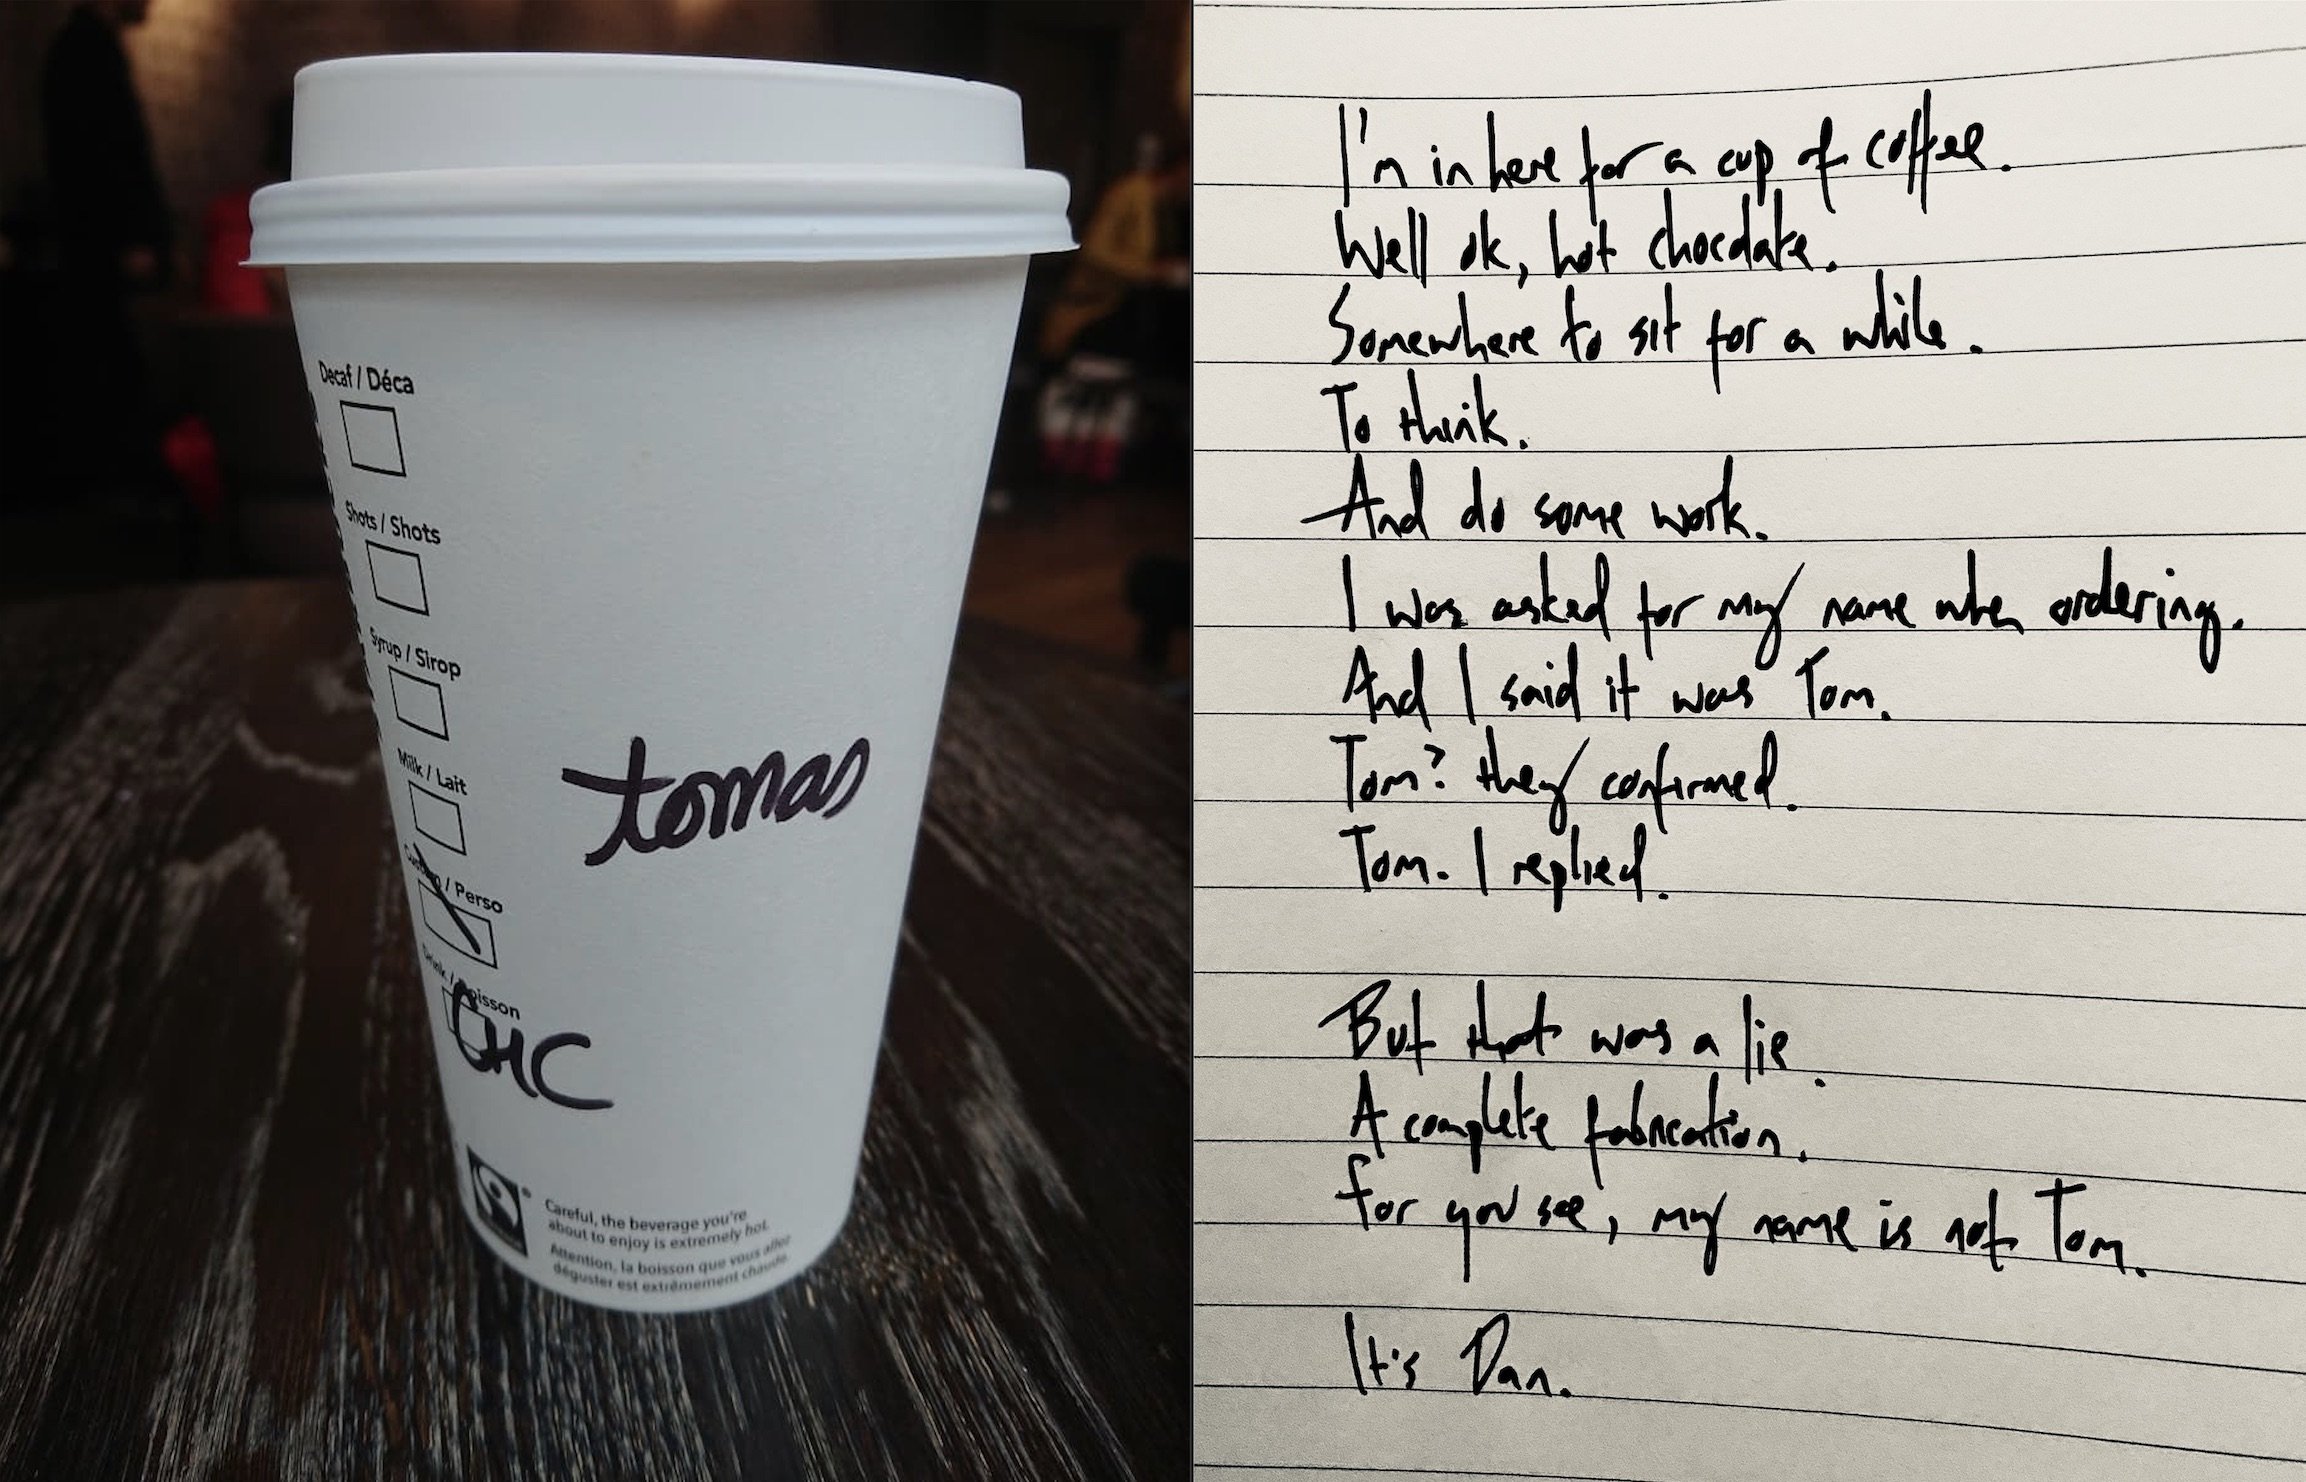 Decaf / Déca
Shots / Shots
Syrup / Sirop
Milk / Lait
Custom / Perso
Drink / Boisson
tomas
CHC
Careful, the beverage you're
about to enjoy is extremely hot.
Attention, la boisson que vous allez
déguster est extrêmement chaude.
I'm in here for a cup of coffee.
Well ok, hot chocolate.
Somewhere to sit for a while.
To think.
And do some work.
I was asked for my name when ordering.
And I said it was Tom.
Tom? they confirmed.
Tom. I replied.
But that was a lie.
A complete fabrication.
For you see, my name is not Tom.
It's Dan.